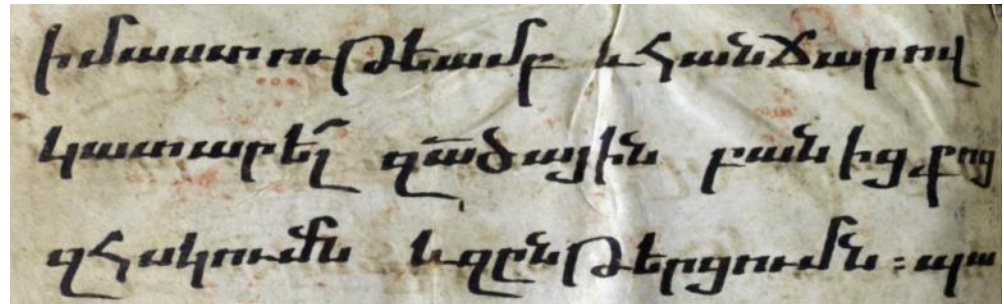 իմաստութեամբ և հանճարով
կատարել զա՟ծային բանից քոց
զհսկումն և զընթերցումն ։ պա